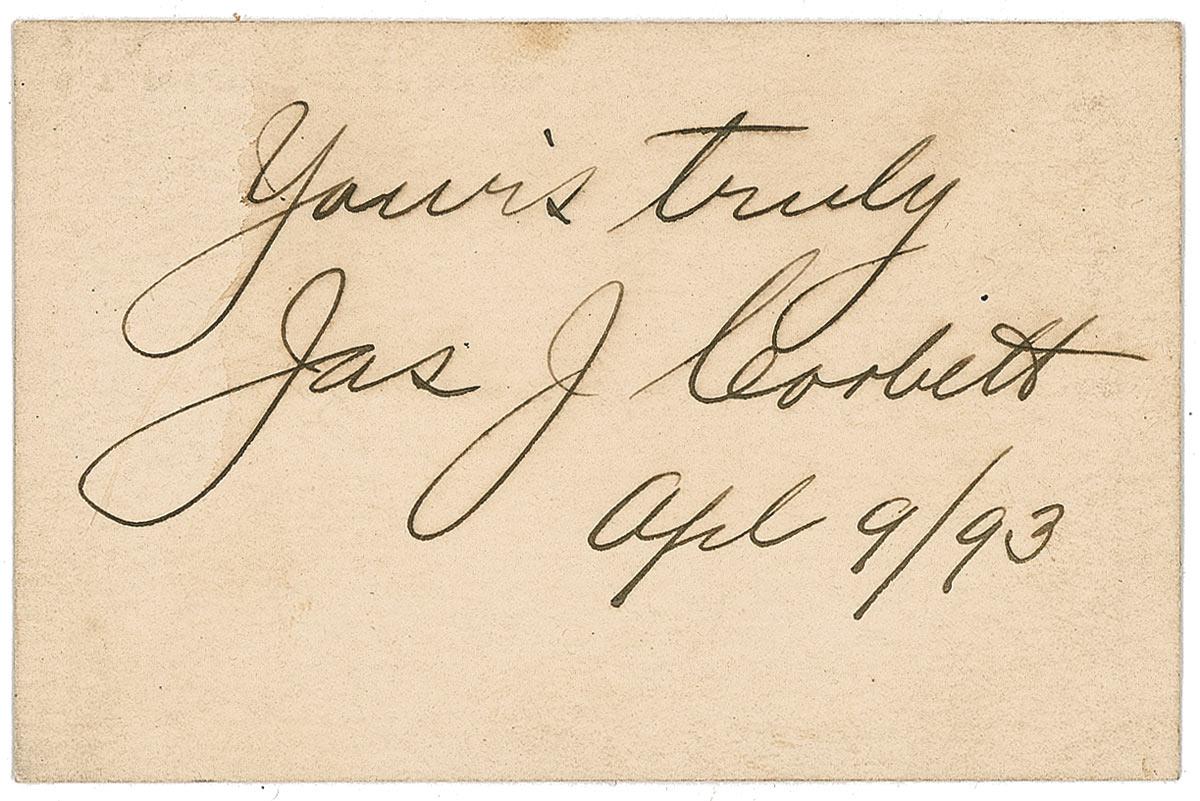 Yours truly
Jas J Corbett
Apl 9/93